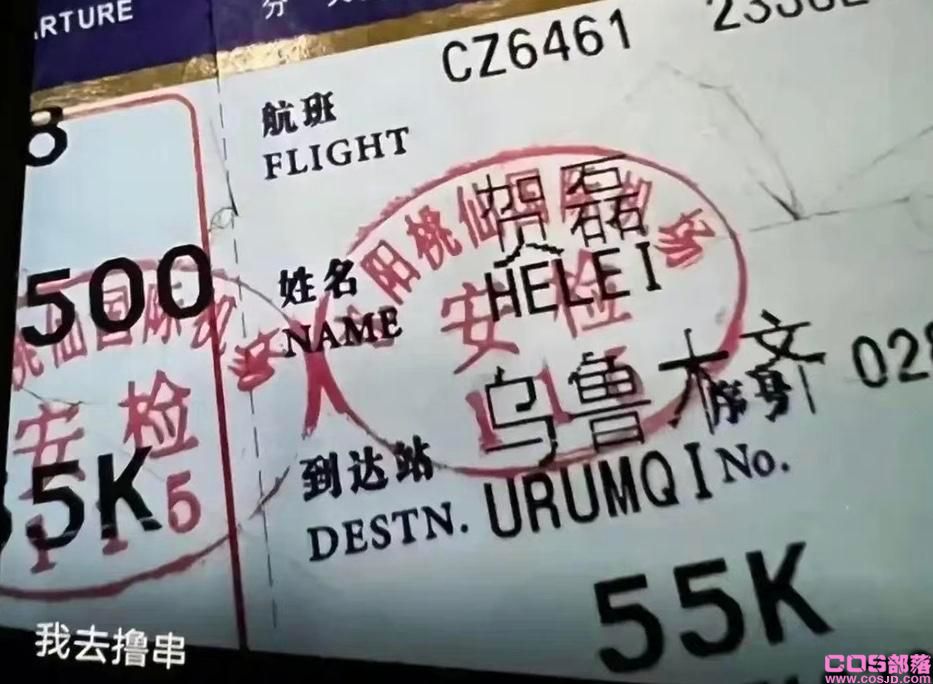 ARTURE
CZ6461
8
航班
FLIGHT
贺磊
500
姓名
HELEI
NAME
阳桃仙国际机
安检
桃仙国际机
安检
115
乌鲁木齐
028
序号
到达站
URUMQI
No.
55K
DESTN.
55K
我去撸串
COS部落
www.cosjd.com